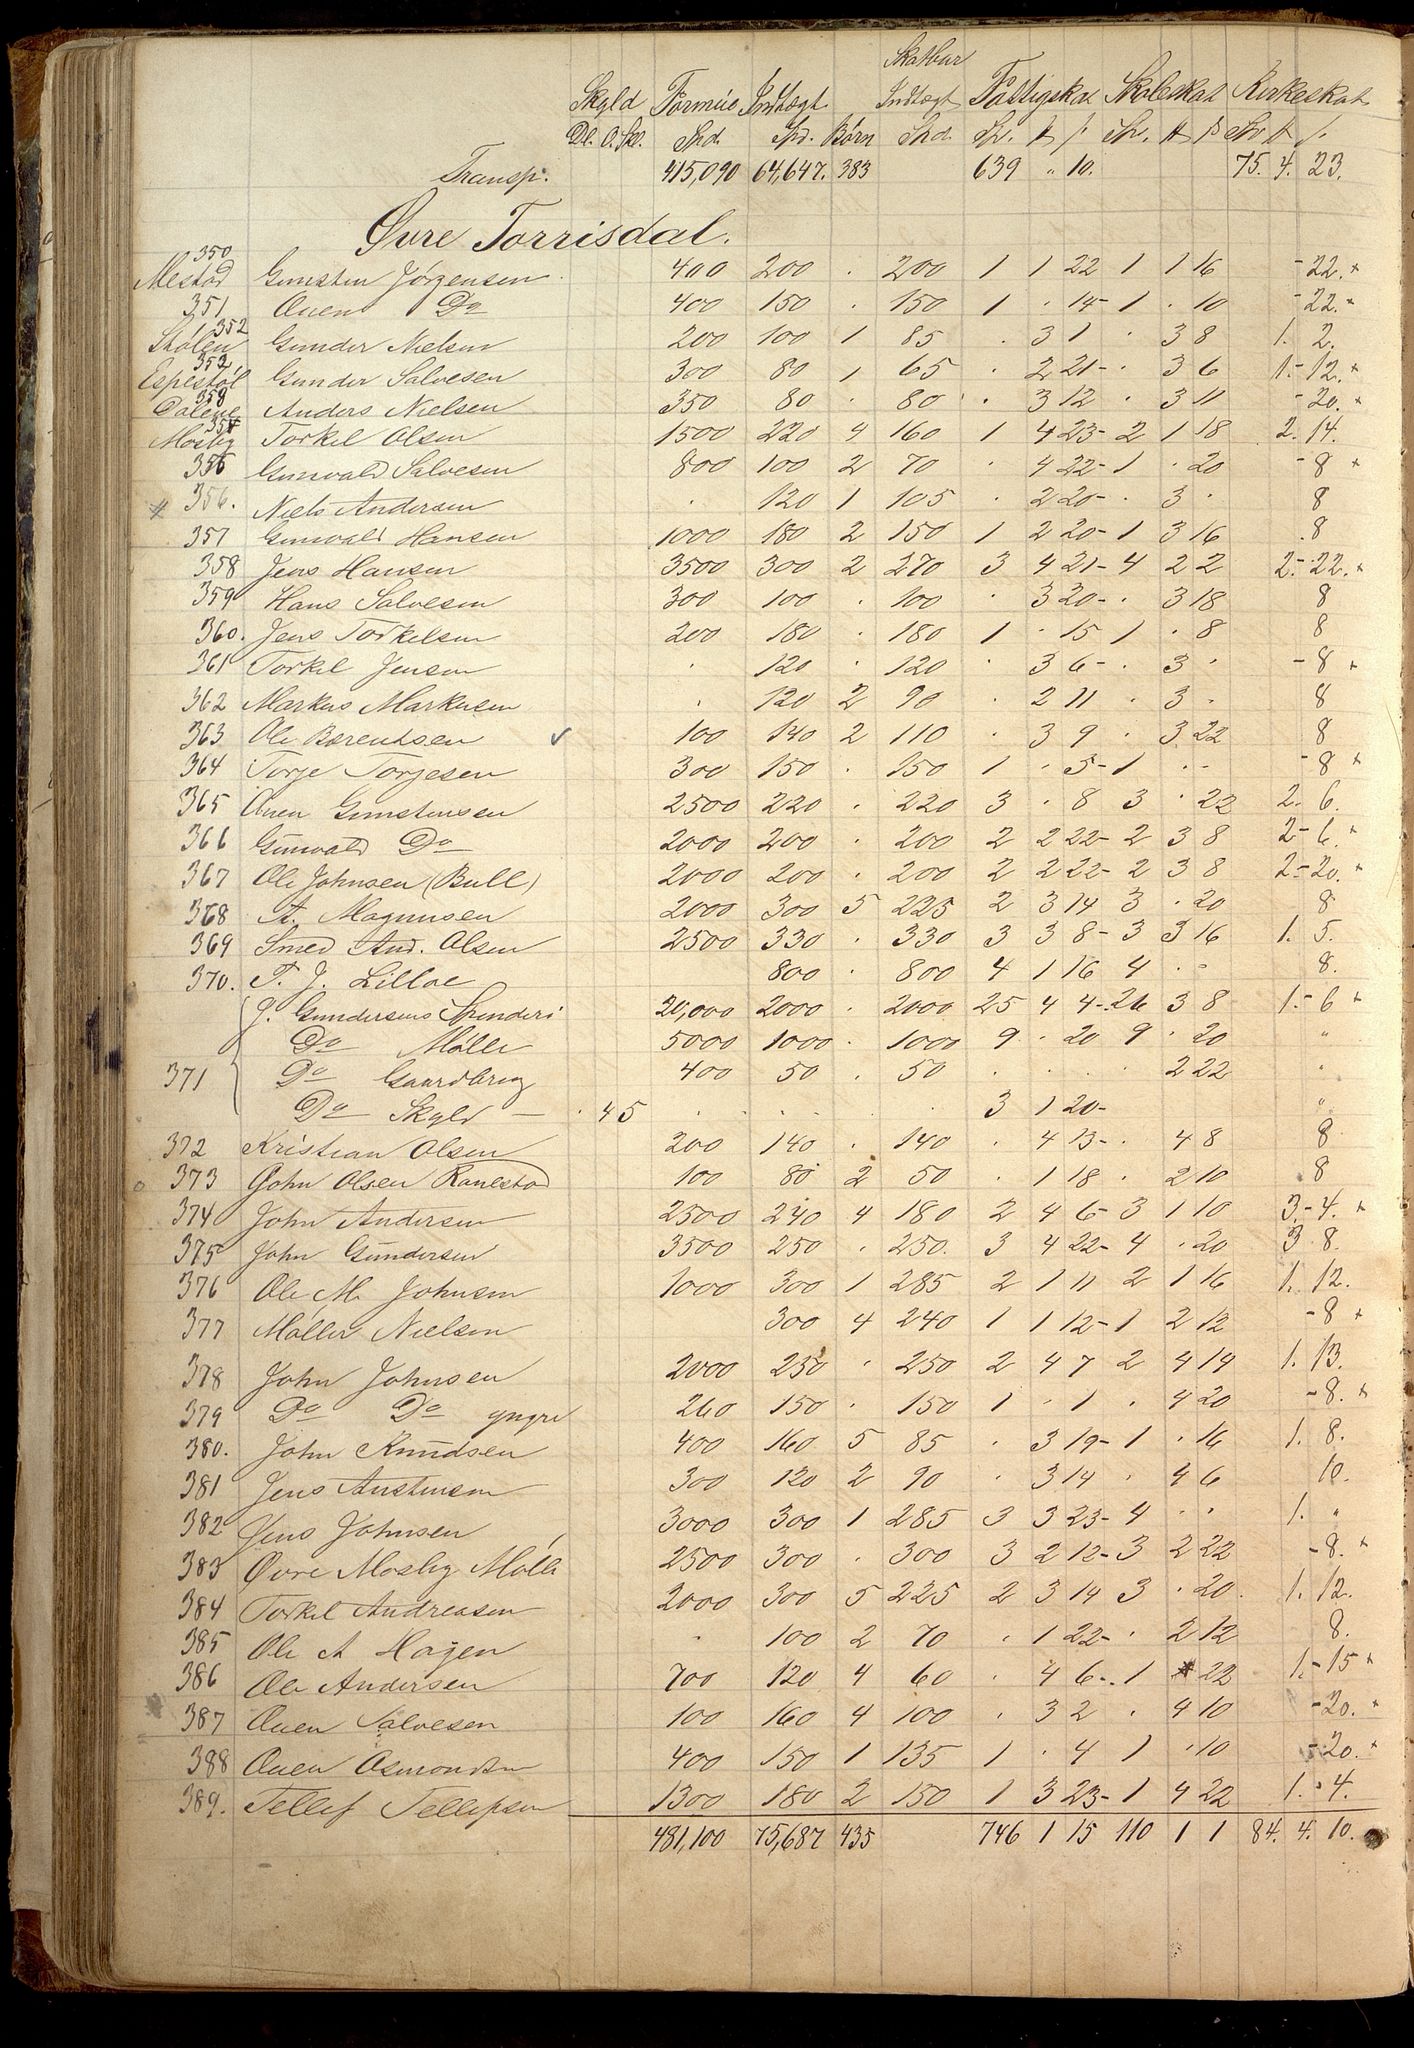 Skatbar
Skyld Formue Indtægt Indtægt Fattigskat Skoleskat Kirkeskat
Dl. O. Skl. Spd. Spd. Børn Spd. Sp. # s. Sp. # s Sp # s.
Transp. 415,090 64,647. 383 639 " 10. 75. 4. 23.
Øvre Torrisdal.
350
Mestad Gunsten Jørgensen 400 200 . 200 1 1 22 1 1 16 - 22. +
351 Auen Do 400 150 . 150 1 . 14 - 1 . 10 - 22. +
352
Stølen Gunder Nielsen 200 100 1 85 . 3 1 . 3 8 1. 2.
353
Espestøl Gunder Salvesen 300 80 1 65 . 2 21 - . 3 6 1. - 12. +
358
Dalene Anders Nielsen 350 80 . 80 . 3 12 . 3 11 - 20. +
354
Mosby Torkel Olsen 1500 220 4 160 1 4 23 - 2 1 18 2. 14.
355 Gunvald Salvesen 800 100 2 70 . 4 22 - 1 . 20 - 8 +
356. Niels Andersen . 120 1 105 . 2 20 - . 3 . 8
357 Gunvald Hansen 1000 180 2 150 1 2 20 - 1 3 16 .8
358 Jens Hansen 3500 300 2 270 3 4 21 - 4 2 2 2. - 22. +
359 Hans Salvesen 300 100 . 100 . 3 20 - . 3 18 8
360. Jens Torkelsen 200 180 . 180 1 . 15 1 . 8 8
361 Torkel Jensen . 120 . 120 . 3 6 - . 3 . - 8 +
362 Markus Markusen . 120 2 90 . 2 11 . 3 . 8
363 Ole Berentsen √ 100 140 2 110 . 3 9 . 3 22 8
364 Torje Torjesen 300 150 . 150 1 . 5 - 1 . . - 8 +
365 Auen Gunstensen 2500 220 . 220 3 . 8 3 . 22 2. 6.
366 Gunvald Do 2000 200 . 200 2 2 22 - 2 3 8 2 - 6. +
367 Ole Johnsen (Bull) 2000 200 . 200 2 2 22 - 2 3 8 2. - 20. +
368 A. Magnusen 2000 300 5 225 2 3 14 3 . 20 8
369 Smed And. Olsen 2500 330 . 330 3 3 8 - 3 3 16 1. 5.
370. T. J. Lilloe 800 . 800 4 1 16 4 . . 8.
J. Gundersens Spinderi 20,000 2000 . 2000 25 4 4 - 26 3 8 1. - 6 +
Do Mølle 5000 1000 . 1000 9 . 20 9 . 20 "
371 Do Gaardbrug 400 50 . 50 . . . . 2 22 "
Do Skyld - . 4 5 . . . . 3 1 20 - "
372 Kristian Olsen 200 140 . 140 . 4 13 - . 4 8 8
373 John Olsen Ronestad 100 80 2 50 . 1 18 . 2 10 8
374 John Andersen 2500 240 4 180 2 4 6 - 3 1 10 3. - 4. +
375 John Gundersen 3500 250 . 250. 3 4 22 - 4 . 20 3 8.
376 Ole M. Johnsen 1000 300 1 285 2 1 11 2 1 16 1. 12.
377 Møller Nielsen 300 4 240 1 1 12 - 1 2 12 - 8 +
378 John Johnsen 2000 250 . 250 2 4 7 2 4 14 1. 13.
379 Do Do yngre 260 150 . 150 1 . 1 . 4 20 - 8. +
380. John Knudsen 400 160 5 85 . 3 19 - 1 . 16 1. 8.
381 Jens Austensen 300 120 2 90 . 3 14 . 4 6 10.
382 Jens Johnsen 3000 300 1 285 3 3 23 - 4 . . 1. "
383 Øvre Mosby Mølle 2500 300 . 300 3 2 12 - 3 2 22 - 8. +
384 Torkel Andreasen 2000 300 5 225 2 3 14 3 . 20. 1. 12.
385 Ole A Hagen . 100 2 70 . 1 22 - . 2 12 8.
386 Ole Andersen 700 120 4 60 . 4 6 - . 1 22 1. - 15 +
387 Auen Salvesen 100 160 4 100 . 3 2 . 4 10 - 20. +
388 Auen Osmondsen 400 150 1 135 1 . 4 1 . 10 - 20. +
389. Tellef Tellefsen 1300 180 2 150 1 3 23 - 1 4 22 1. . 4.
481,100 75,687 435 746 1 15 110 1 1 84. 4. 10.